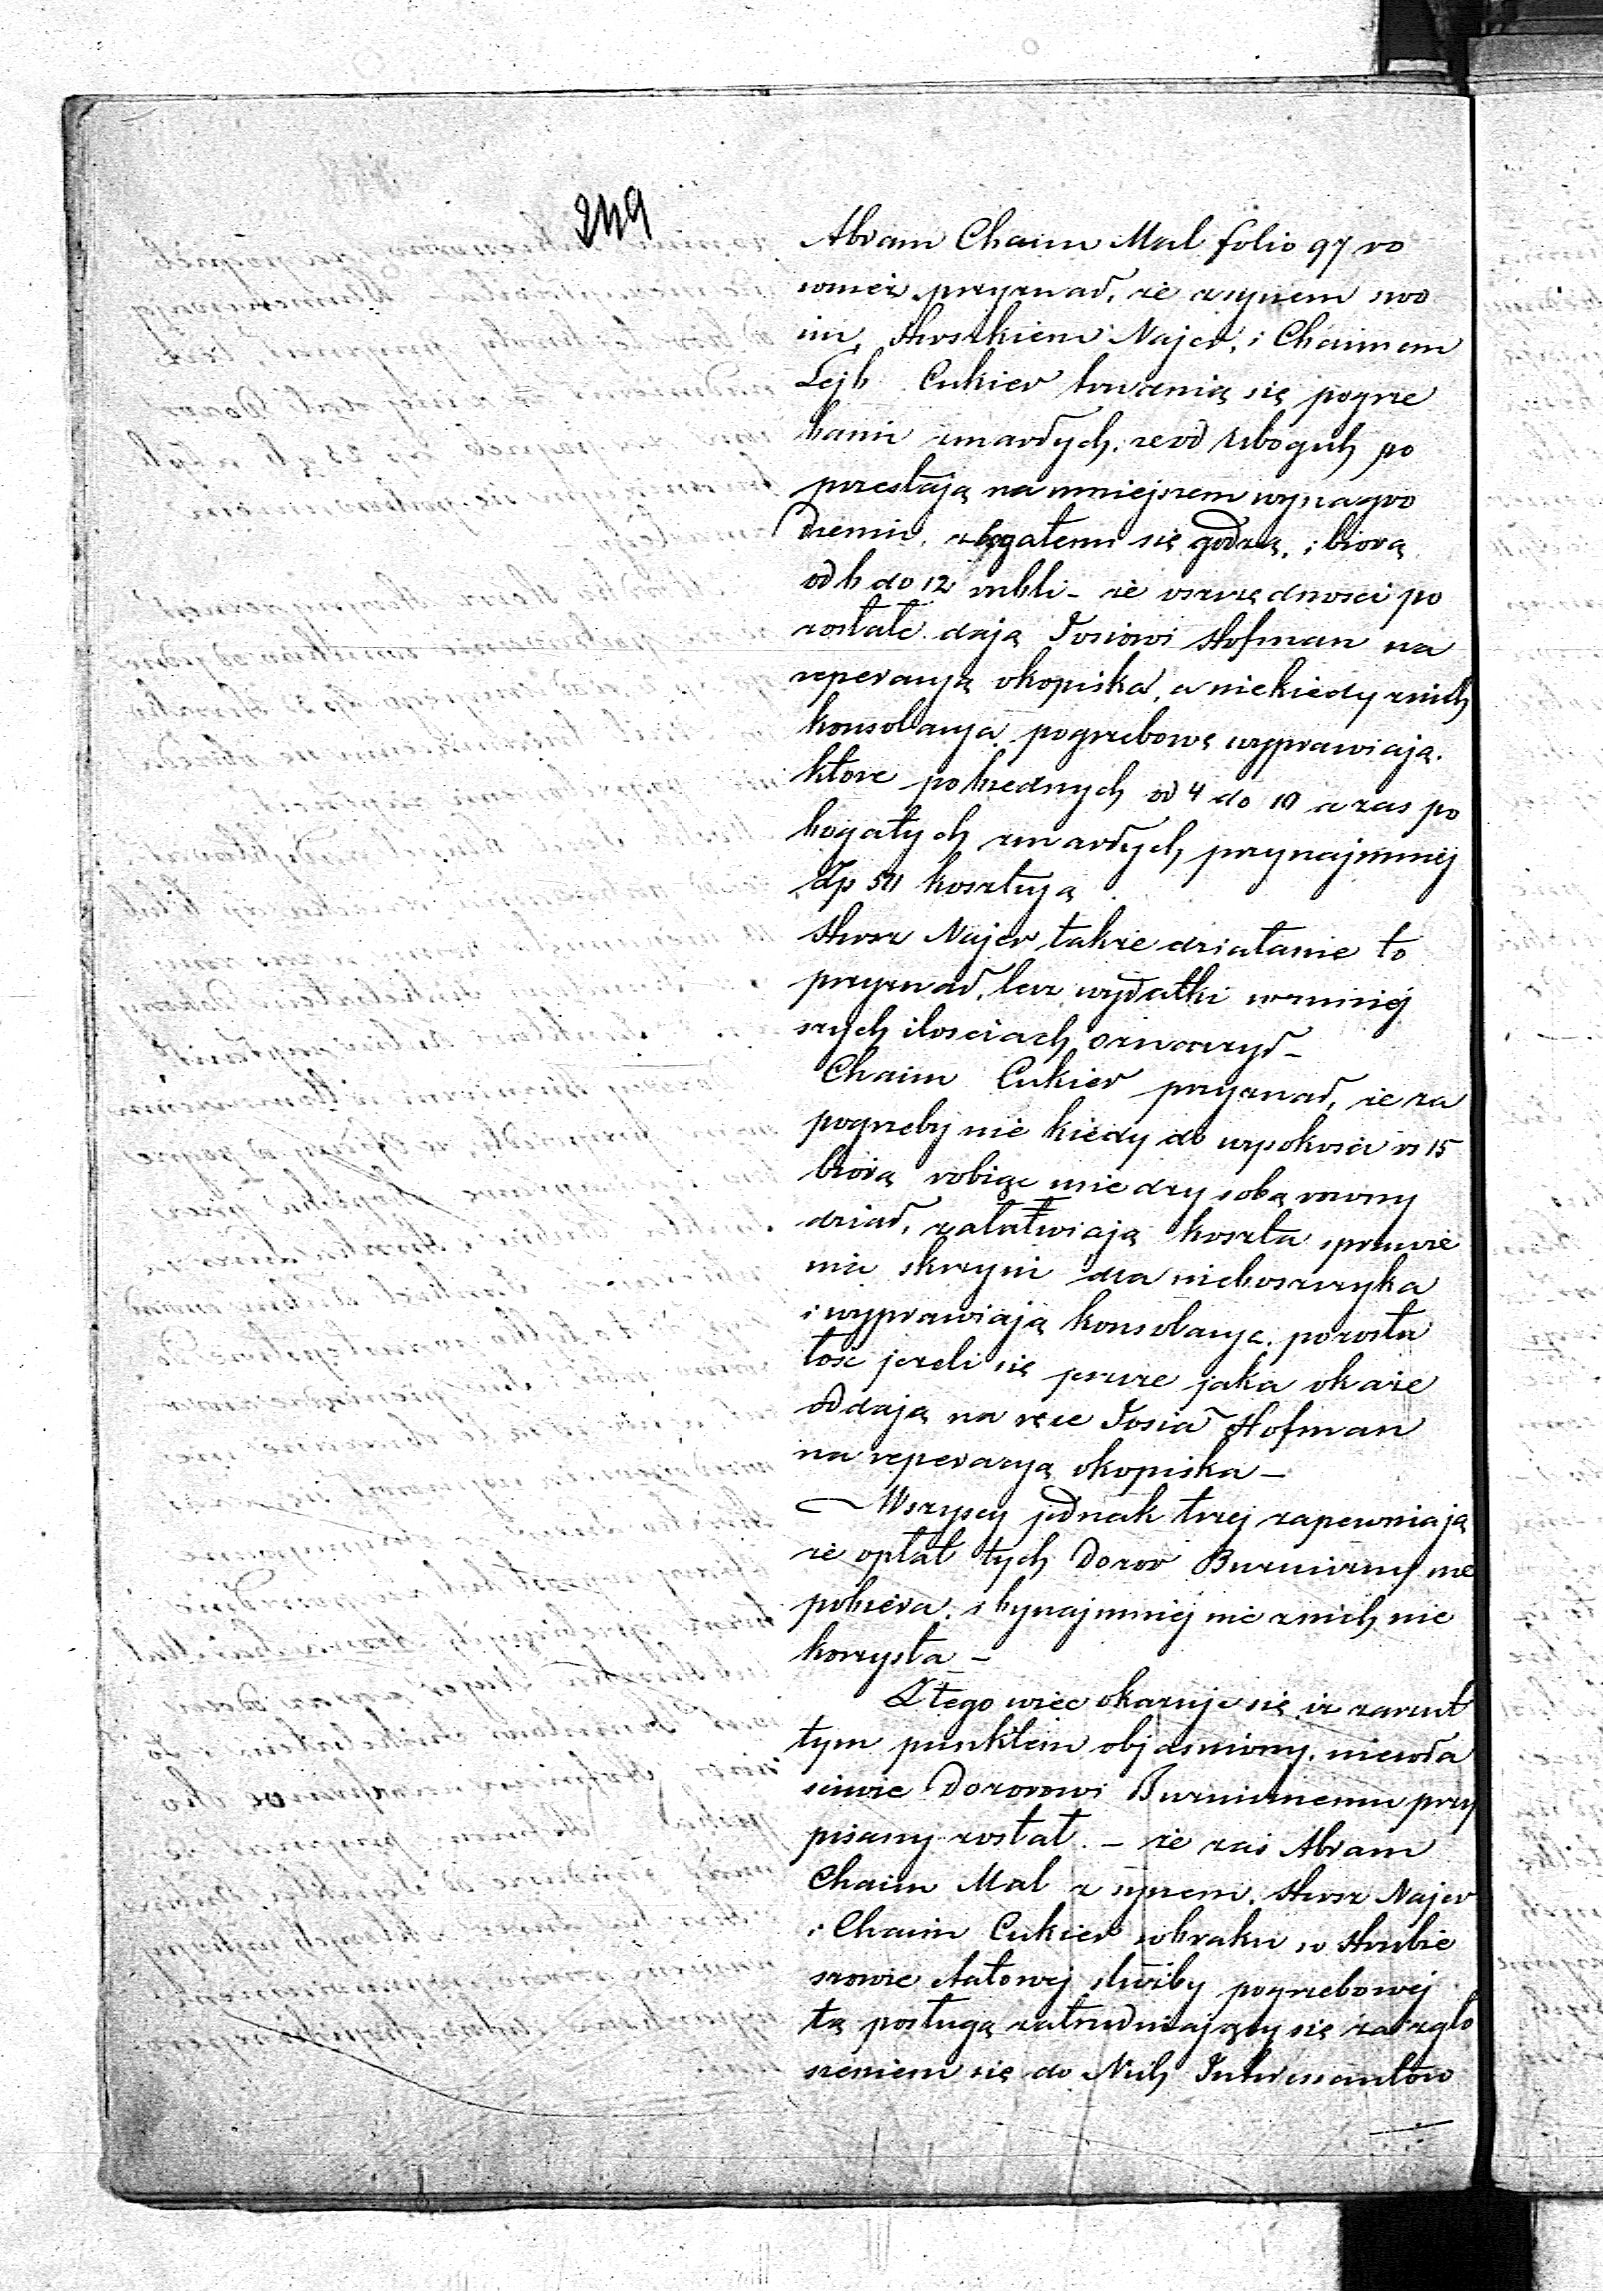 249
Abram Chaim Mal folio 97 ro
wnież przyznał, że z synem swo
im, Herszkiem Najer, i Chaimem
Lejb Cukier trudnią się pogrze
baniem zmarłych, że od ubogich po
przestają na mniejszem wynagro
dzeniu, z bogatemi się godzą, i biorą
od 6 do 12 rubli – że oszczędności po
zostałe dają Josiowi Hofman na
reperacyą okopiska, a niekiedy z nich
konsolacyą pogrzebową wyprawiają.
które po biednych od 4 do 10 a zaś po
bogatych zmarłych przynajmniej
Złp 50 kosztują.
Hersz Najer także działanie to
przyznał, lecz wydatki w mniej
szych ilościach oznaczył –
Chaim Cukier przyznał, że za
pogrzeby nie kiedy do wysokości rs 15
biorą robiąc miedzy sobą rowny
dział, załatwiają koszta sprawie
nia skrzyni dla nieboszczyka
i wyprawiają konsolacyę, pozosta
łość jezeli się jeszcze jaka okaże
oddają na ręce Josia Hofman
na reperacyą okopiska –
Wszyscy jednak trzej zapewniają
że opłat tych Dozor Bużniczny nie
pobiera, i bynajmniej nic z nich nie
korzysta –
Z tego więc okazuje się iż zarzut
tym punktem objaśniony, niewła
ściwie Dozorowi Bużnicznemu przy
pisany został. – że zaś Abram
Chaim Mal z synem, Hersz Najer
i Chaim Cukier w braku w Hrubie
szowie etatowej służby pogrzebowej
tą posługą zatrudniający się za zgło
szeniem się do Nich Interessantów